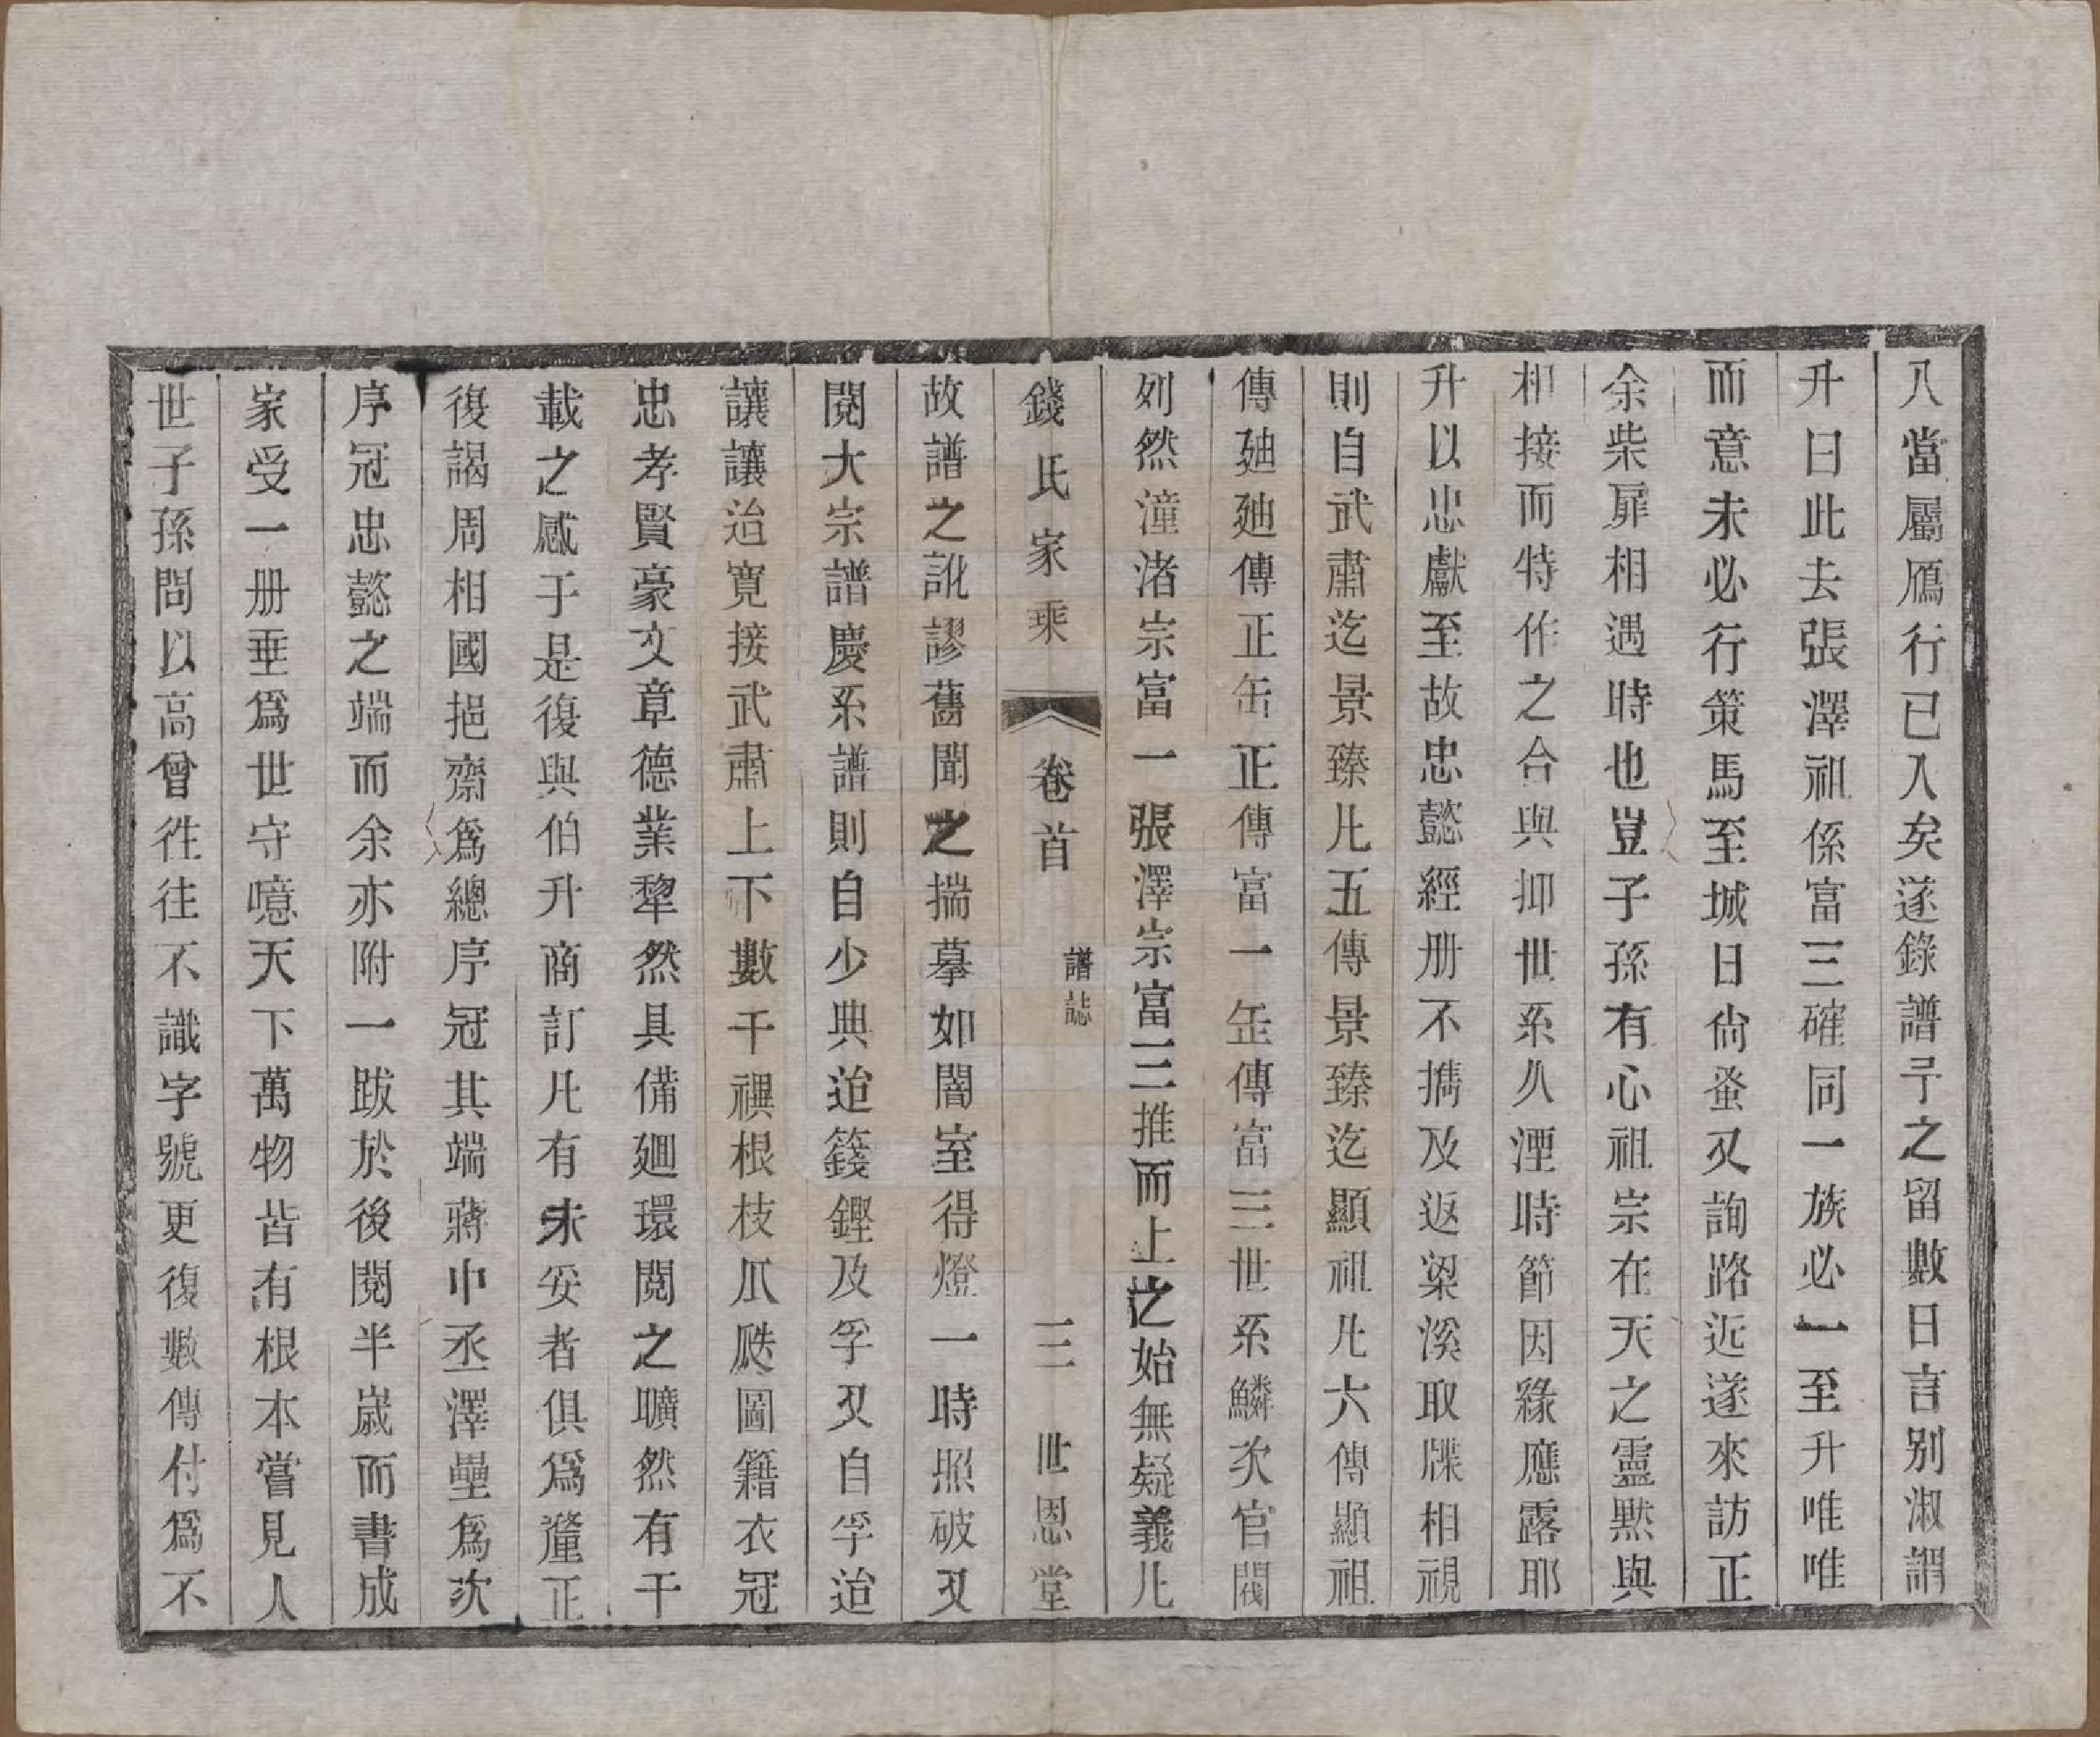 八當屬鴈行已入矣遂錄譜予之留數日言别淑謂
升曰此去張澤祖係富三確同一族必一至升唯唯
而意未必行策馬至城日尙蚤又詢路近遂來訪正
余柴扉相遇時也豈子孫有心祖宗在天之靈黙與
相接而特作之合與抑世系久湮時節因緣應露耶
升以忠獻至故忠懿經册不擕及返梁溪取牒相視
則自武肅迄景臻凡五傳景臻迄顯祖凡六傳顯祖
傳廸廸傳正缶正傳富一缶傳富三世系鱗次官閥
列然潼渚宗富一張澤宗富三推而上之始無疑義凡
錢氏家乘 卷首 譜誌 三 世恩堂
故譜之訛謬舊聞之揣摹如闇室得燈一時照破又
閱大宗譜慶系譜則自少典迨籛鏗及孚又自孚迨
讓讓迨寬接武肅上下數千禩根枝瓜瓞圖籍衣冠
忠孝賢豪文章德業犂然具備廻環閱之曠然有千
載之感于是復與伯升商訂凡有未妥者俱爲釐正
復謁周相國挹齋爲總序冠其端蔣中丞澤壘爲次
序冠忠懿之端而余亦附一跋於後閱半歲而書成
家受一册垂爲世守噫天下萬物皆有根本嘗見人
世子孫問以高曾徃往不識字號更復數傳付爲不